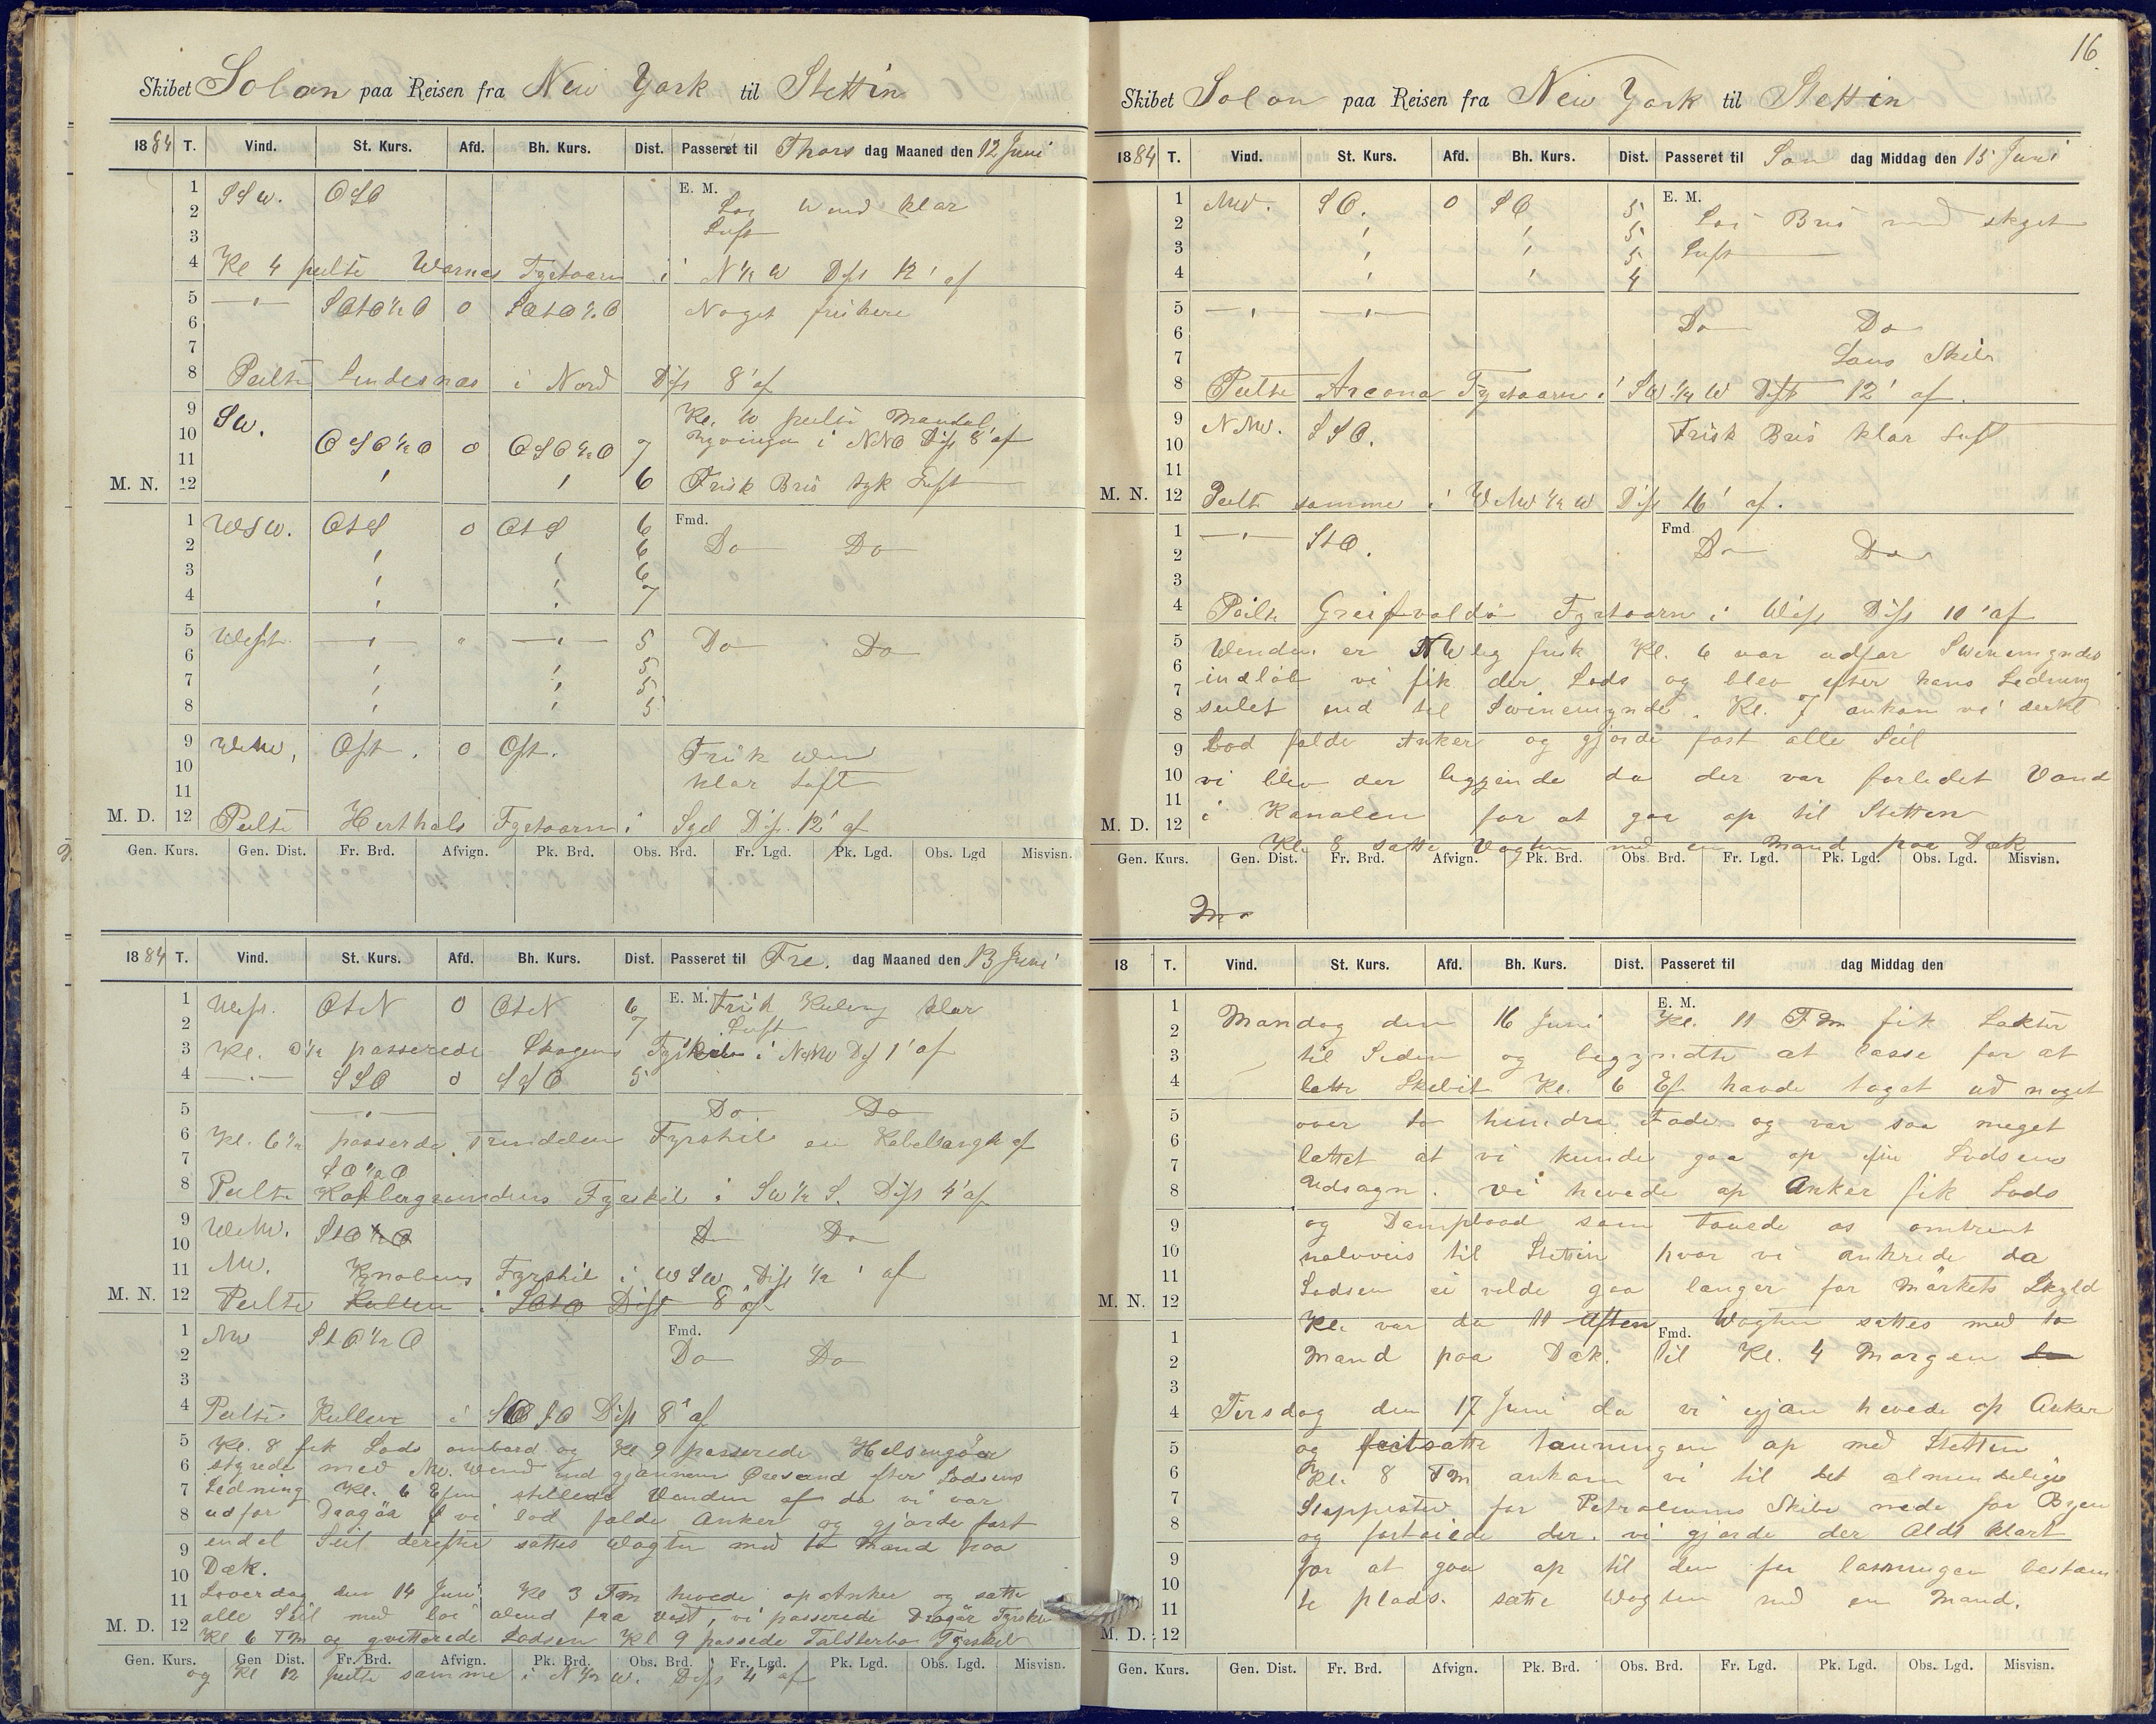 Skibet Solon paa Reisen fra New York til Stettin
1884 T. Vind. St. Kurs. Afd. Bh. Kurs. Dist. Passeret til Thors dag Maaned den 12 Juni
1 SSW. OSO E. M.
2 Loi Wind klar
3 Luft
4 Kl 4 peilte Warnes Fyrtaarn i N ½ W Dist 12' af
5 SOtO½O 0 SOtO½O Noget friskere
6
7
8 Peilte Lindesnæs i Nord Dist 8' af
9 SW. Kl. 10 peilte Mandal
10 OSO½O 0 OSO½O 7 i NNO Dist 8' af
11
M. N. 12 ' ' 6 Frisk Bris tyk Luft
1 WSW. OtS 0 OtS 6 Fmd.
2 ' ' 6 Do Do
3 ' ' 6
4 ' ' 7
5 West 5 Do Do
6 ' ' 5
7 ' ' 5
8 ' ' 5
9 WNW, Ost. 0 Ost. Frisk Win
10 klar Luft
11
M. D. 12 Peilte Herthals Fyrtaarn i Syd Dist. 12' af
Gen. Kurs. Gen. Dist. Fr. Brd. Afvign. Pk. Brd. Obs. Brd. Fr. Lgd. Pk. Lgd. Obs. Lgd Misvisn.
1884 T. Vind. St. Kurs. Afd. Bh. Kurs. Dist. Passeret til Fre. dag Maaned den 13 Juni
1 West. OtN 0 OtN 6 E. M. Frisk Kuling klar
2 7 Luft
3 Kl. passerede Skagens i Dist 1' af
4 SSO 0 SSO 5
5 Do Do
6 Kl. 6½ passerde Trindelen Fyrskib en Kabellangde af
7 SO½O
8 Peilte Fyrskib i SW½S. Dist 4' af
9 WNW. StO½O Do Do
10
11 NW. Knobens Fyrskib i WSW Dist ½' af
M. N. 12 Peilte Kullen i Dist 8' af
1 NW StO½O Fmd.
2 Do Do
3
4 Peilte Kullen i Dist 8' af
5 Kl. 8 fik Lods ombord og Kl 9 passerede Helsingør
6 styrede med NW. Wend ind gjennem Øresund efter Lodsens
7 Ledning Kl. 6 Efm stillede Vinden af da vi var
8 udfor Dragør vi lod falde Anker og gjorde fast
9 endel Seil derefter sattes Wagten med to Mand paa
10 Dæk.
11 Loverdag den 14 Juni Kl 3 Fm hevede op Anker og satte
M. D. 12 alle Seil med loi Wend fra Vest, vi passerede Dragør Fyrskib
Kl 6 Fm og qvitterede Lodsen Kl 9 passede Falsterbo Fyrskib
Gen. Kurs. Gen Dist. Fr. Brd. Afvign. Pk. Brd. Obs. Brd. Fr. Lgd. Pk. Lgd. Obs. Lgd. Misvisn.
og Kl 12 peilte samme i N½W. Dist 4' af
16
Skibet Solon paa Reisen fra New York til Stettin
1884 T. Vind. St. Kurs. Afd. Bh. Kurs. Dist. Passeret til Søn dag Middag den 15 Juni
1 NW. SO. 0 SO 5 E. M.
2 ' ' 5 Loi Bris med skyet
3 ' ' 5 Luft
4 ' ' 4
5
6 Do Do
7 Lous Skib
8 Peilte Arcona Fyrtaarn i SW.¼W Dist 12' af.
9 NNW. SSO.
10 Frisk Bris klar Luft
11
M. N. 12 Peilte samme i WNW½W Dist 16' af.
1 StO. Fmd
2 Do Do
3
4 Peilte Greifvaldø Fyrtaarn i West Dist 10' af
5 Wenden er NWlig frisk Kl. 6 var udfor Swinemynde
6 indløb vi fik der Lods og blev efter hans Ledning
7 seilet ind til Swinemynde. Kl. 7 ankom vi derte
8
9 Lod falde Anker og gjorde fast alle Seil
10 vi blev der liggende da der var forledet Vand
11 i Kanalen for at gaa op til Stetten
M. D. 12
Kl. 8 satte Vagten med en Mand paa Dæk
Gen. Kurs. Gen. Dist. Fr. Brd. Afvign. Pk. Brd. Obs. Brd. Fr. Lgd. Pk. Lgd. Obs. Lgd. Misvisn.
18 T. Vind. St. Kurs. Afd. Bh. Kurs. Dist. Passeret til dag Middag den
1 E. M.
2 Mandag den 16 Juni Kl. 11 Fm fik Lekter
3 til Siden og begyndte at losse for at
4 lette Skibet Kl. 6 Ef havde taget ud noget
5 over to hundre Fade og var saa meget
6
7 lettet at vi kunde gaa op efter Lodsens
8 Udsagn. Vi hevede op Anker fik Lods
9 og Dampbaad som touede os omtrent
10 halvveis til Stettin hvor vi ankrede da
11
M. N. 12 Lodsen ei vilde gaa længer for Mørkets Skyld
Kl. var da 11 Aften Fmd. Wagten sattes med to
1
2 Mand paa Dæk. til Kl. 4 Morgen
3
4 Tirsdag den 17 Juni da vi igjen hevede op Anker
5 og fortsatte touningen op med Stetten
6 Kl. 8 Fm ankom vi til det almindelige
7 Stoppested for Petroleums Skibe nede for Byen
8 og fortøiede der. vi gjorde der Aldt klart
9 for at gaa op til den for lasningen bestem
10
11 te plads. satte Wagten med en Mand.
M. D. 12
Gen. Kurs. Gen. Dist. Fr. Brd. Afvign. Pk. Brd. Obs. Brd. Fr. Lgd. Pk. Lgd. Obs. Lgd. Misvisn.